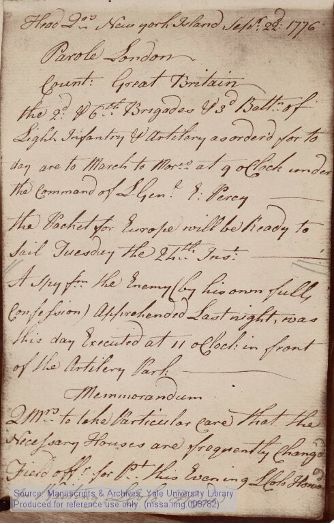 Head Qrs New york Island Sepr. 22d. 1776
Parole London
Count: Great Britain
the 2d. & 6th Brigades & 3d Battn. of
Light Infantry & Artilery as orderd for to
day are to March to Morw at 9 oClock under
the Command of L Genl. E. Percy
the Packet for Europe will be Ready to
Sail Tuesday the 24th Inst.
A Spy fm the Enemy (by his own full
Confession) Apprehended Last night, was
this day Executed at 11 oClock in front
of the Artilery Park
Memorandum
Q Mrs to take Particular care that the
Necessary Houses are frequently Changd
Field offr. for Pt. this Evening
Source: Manuscripts & Archives, Yale University Library
Produced for reference use only. (mssa.img.005782)